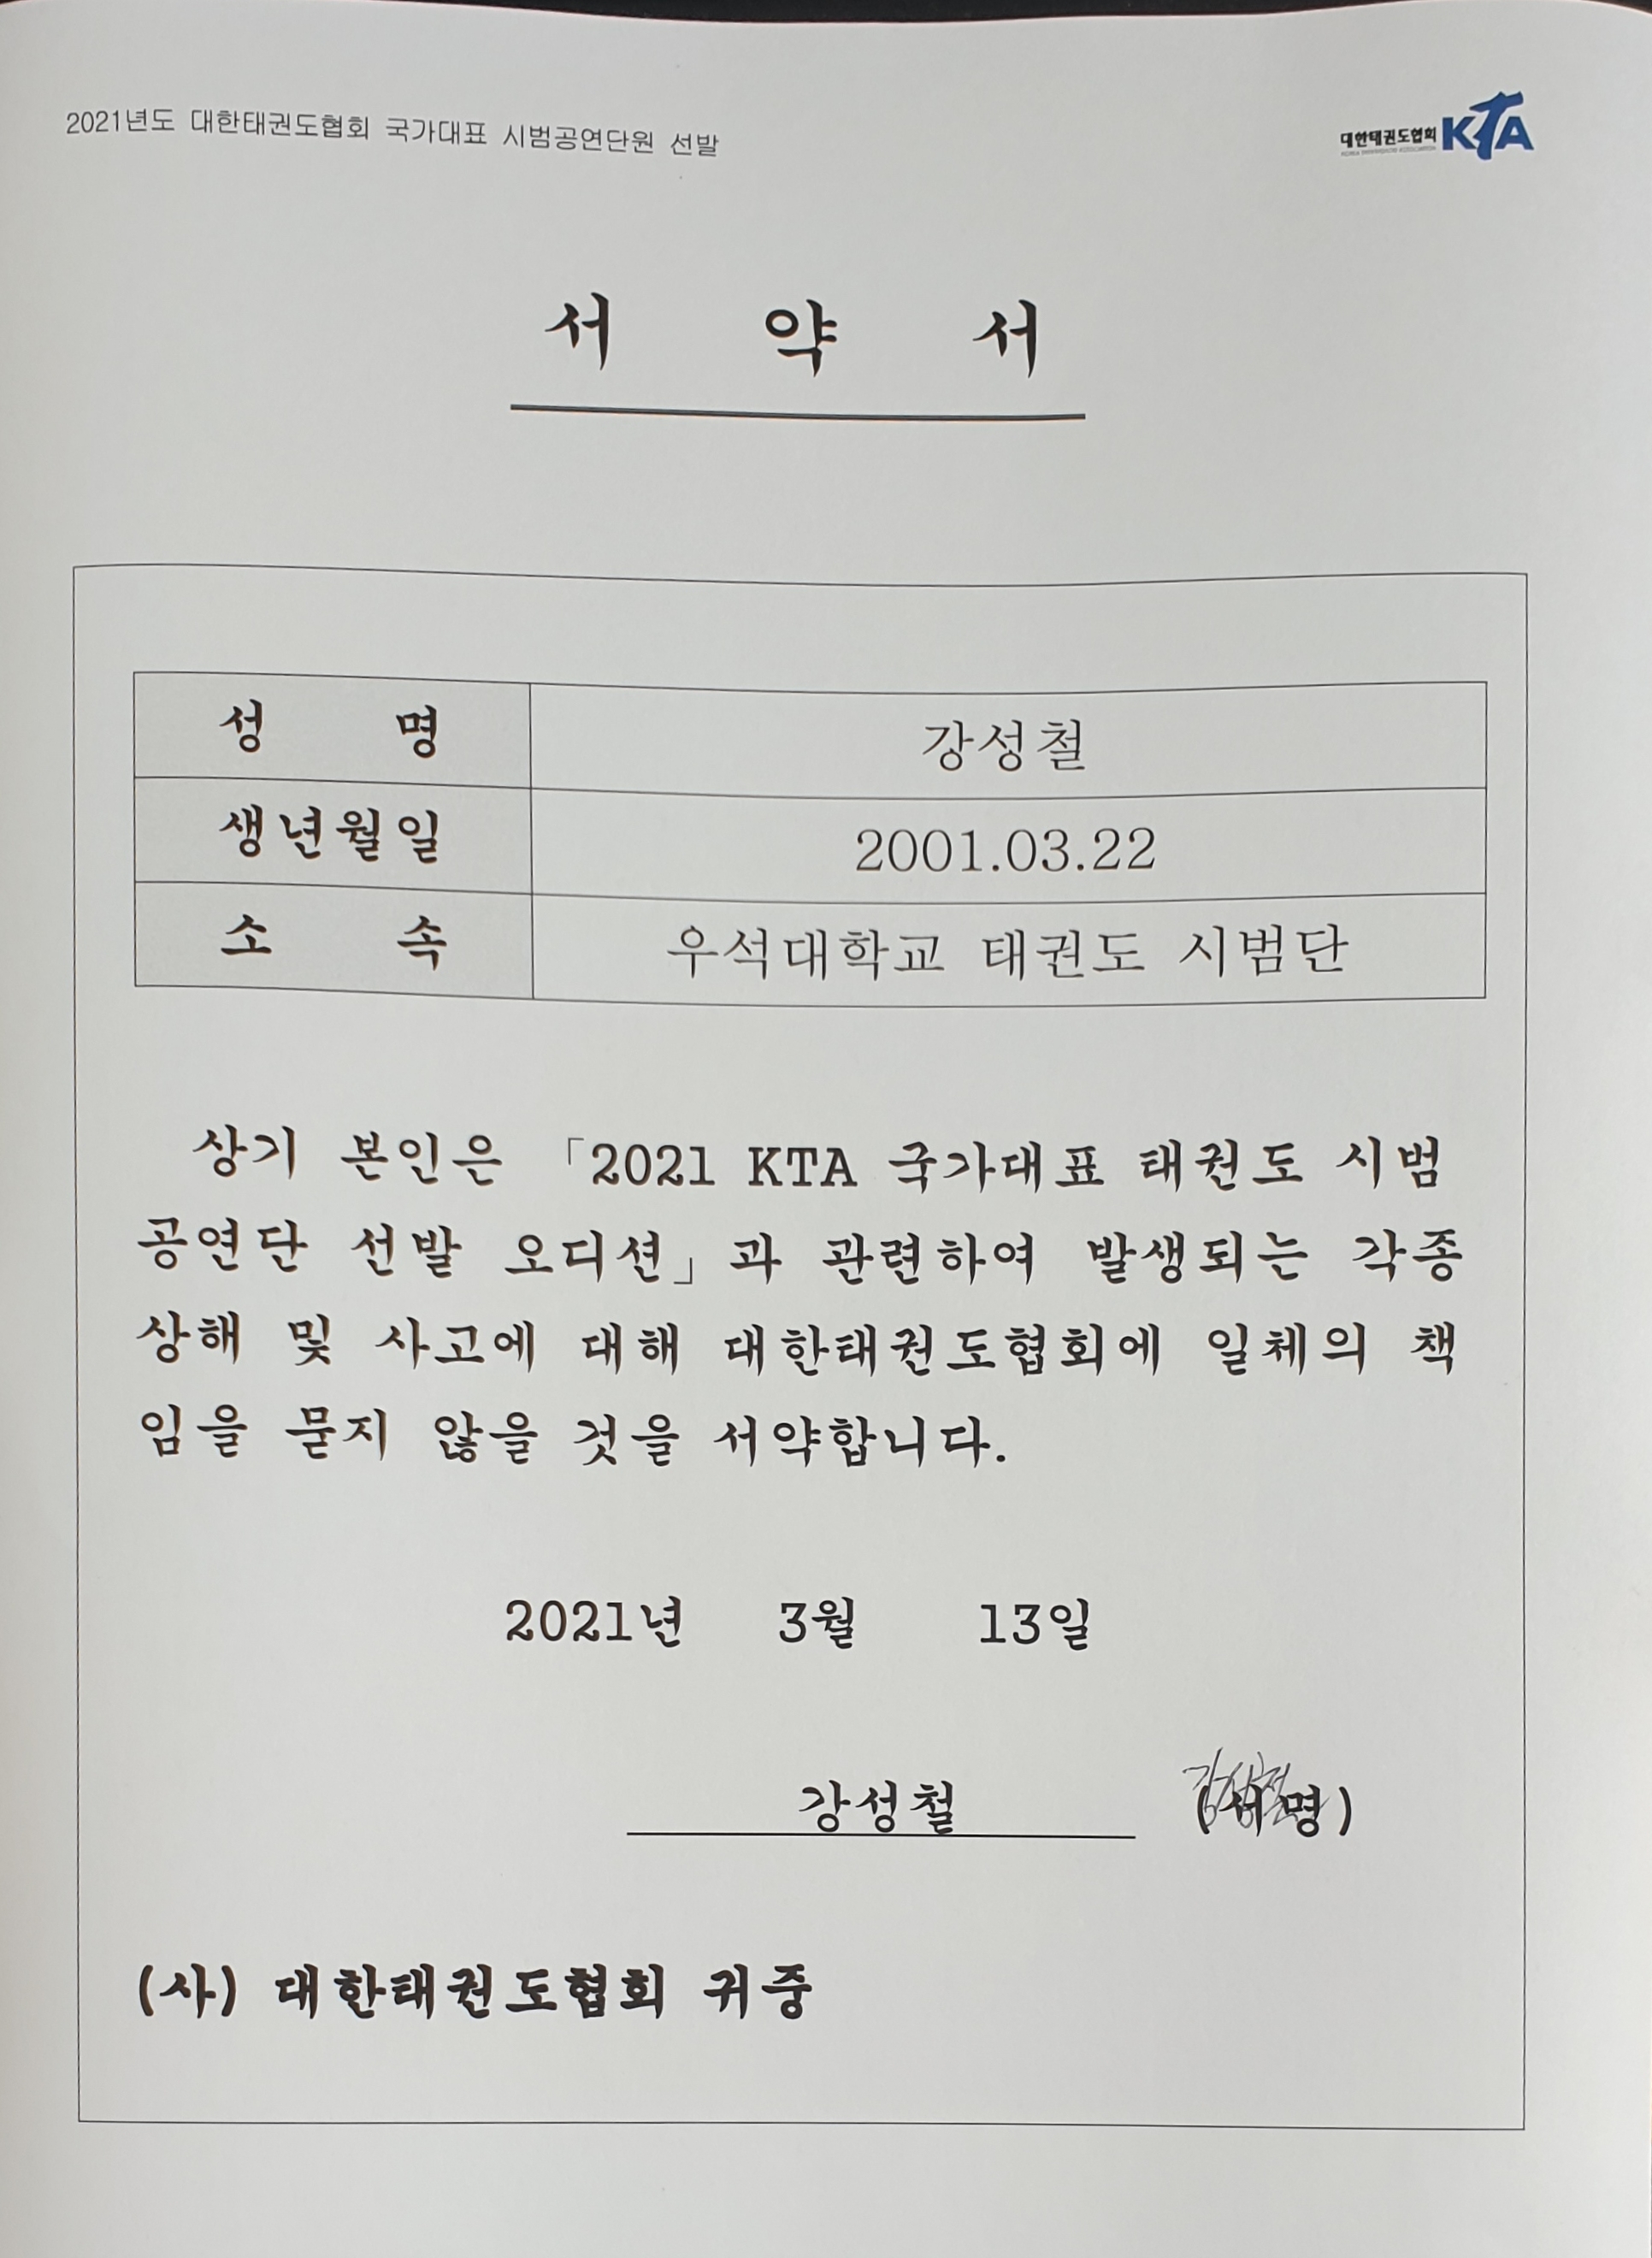 2021년도 대한태권도협회 국가대표 시범공연단원 선발
대한태권도협회 KTA
서 약 서
성 명 강성철
생년월일 2001.03.22
소 속 우석대학교 태권도 시범단
상기 본인은 「2021 KTA 국가대표 태권도 시범
공연단 선발 오디션」과 관련하여 발생되는 각종
상해 및 사고에 대해 대한태권도협회에 일체의 책
임을 묻지 않을 것을 서약합니다.
2021년 3월 13일
강성철 (서명)
강성철
(사) 대한태권도협회 귀중